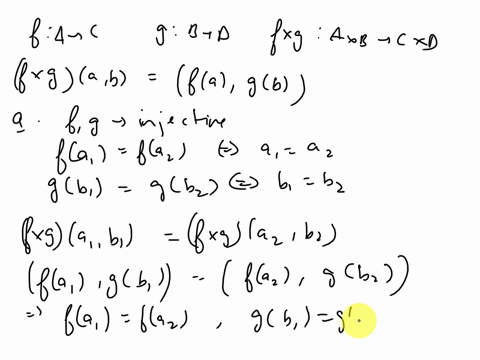 f : A → C g : B → D f×g : A×B → C×D
(f×g)(a,b) = (f(a), g(b))
a. f, g → injective
f(a₁) = f(a₂) ⇔ a₁ = a₂
g(b₁) = g(b₂) ⇔ b₁ = b₂
f×g)(a₁, b₁) = (f×g)(a₂, b₂)
(f(a₁), g(b₁)) = (f(a₂), g(b₂))
⇒ f(a₁) = f(a₂) , g(b₁) = g